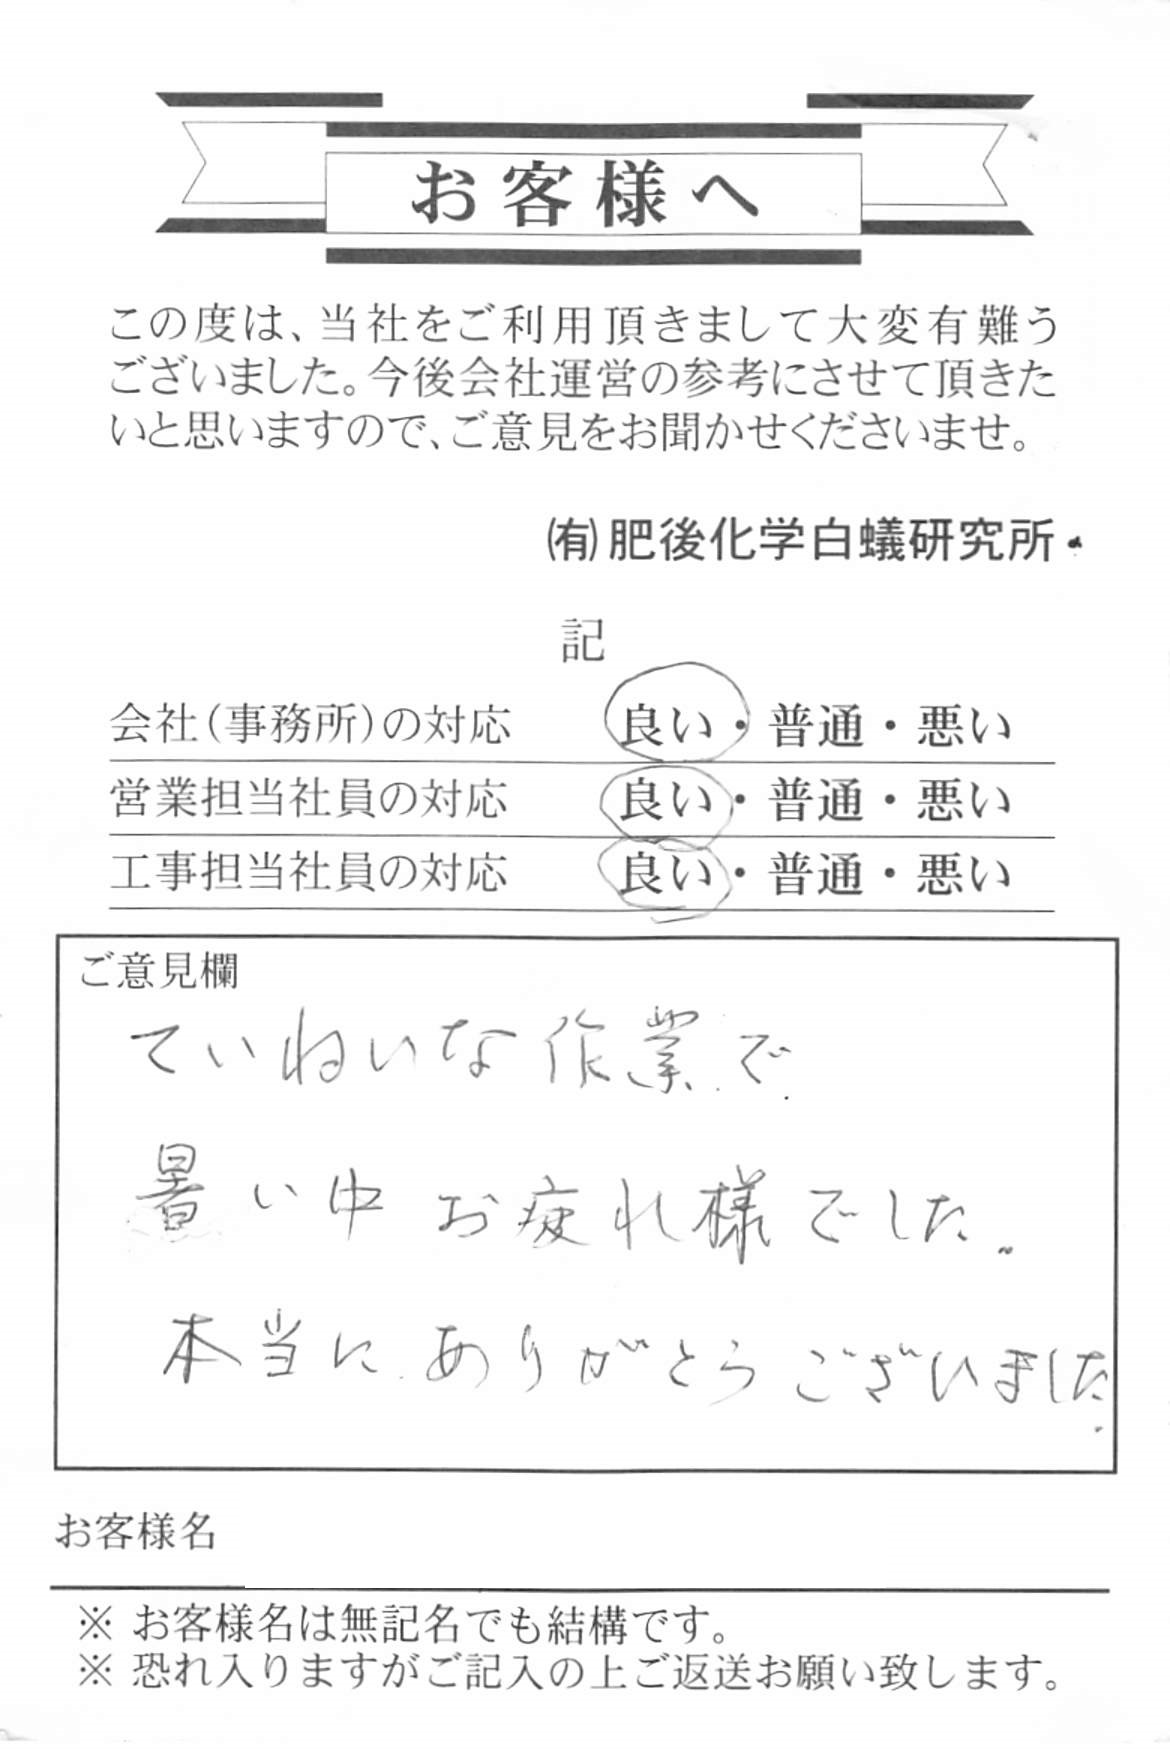 お客様へ
この度は、当社をご利用頂きまして大変有難う
ございました。今後会社運営の参考にさせて頂きた
いと思いますので、ご意見をお聞かせくださいませ。
㈲肥後化学白蟻研究所
記
会社(事務所)の対応 良い・普通・悪い
営業担当社員の対応 良い・普通・悪い
工事担当社員の対応 良い・普通・悪い
ご意見欄
ていねいな作業で
暑い中お疲れ様でした。
本当にありがとうございました。
お客様名
※ お客様名は無記名でも結構です。
※ 恐れ入りますがご記入の上ご返送お願い致します。